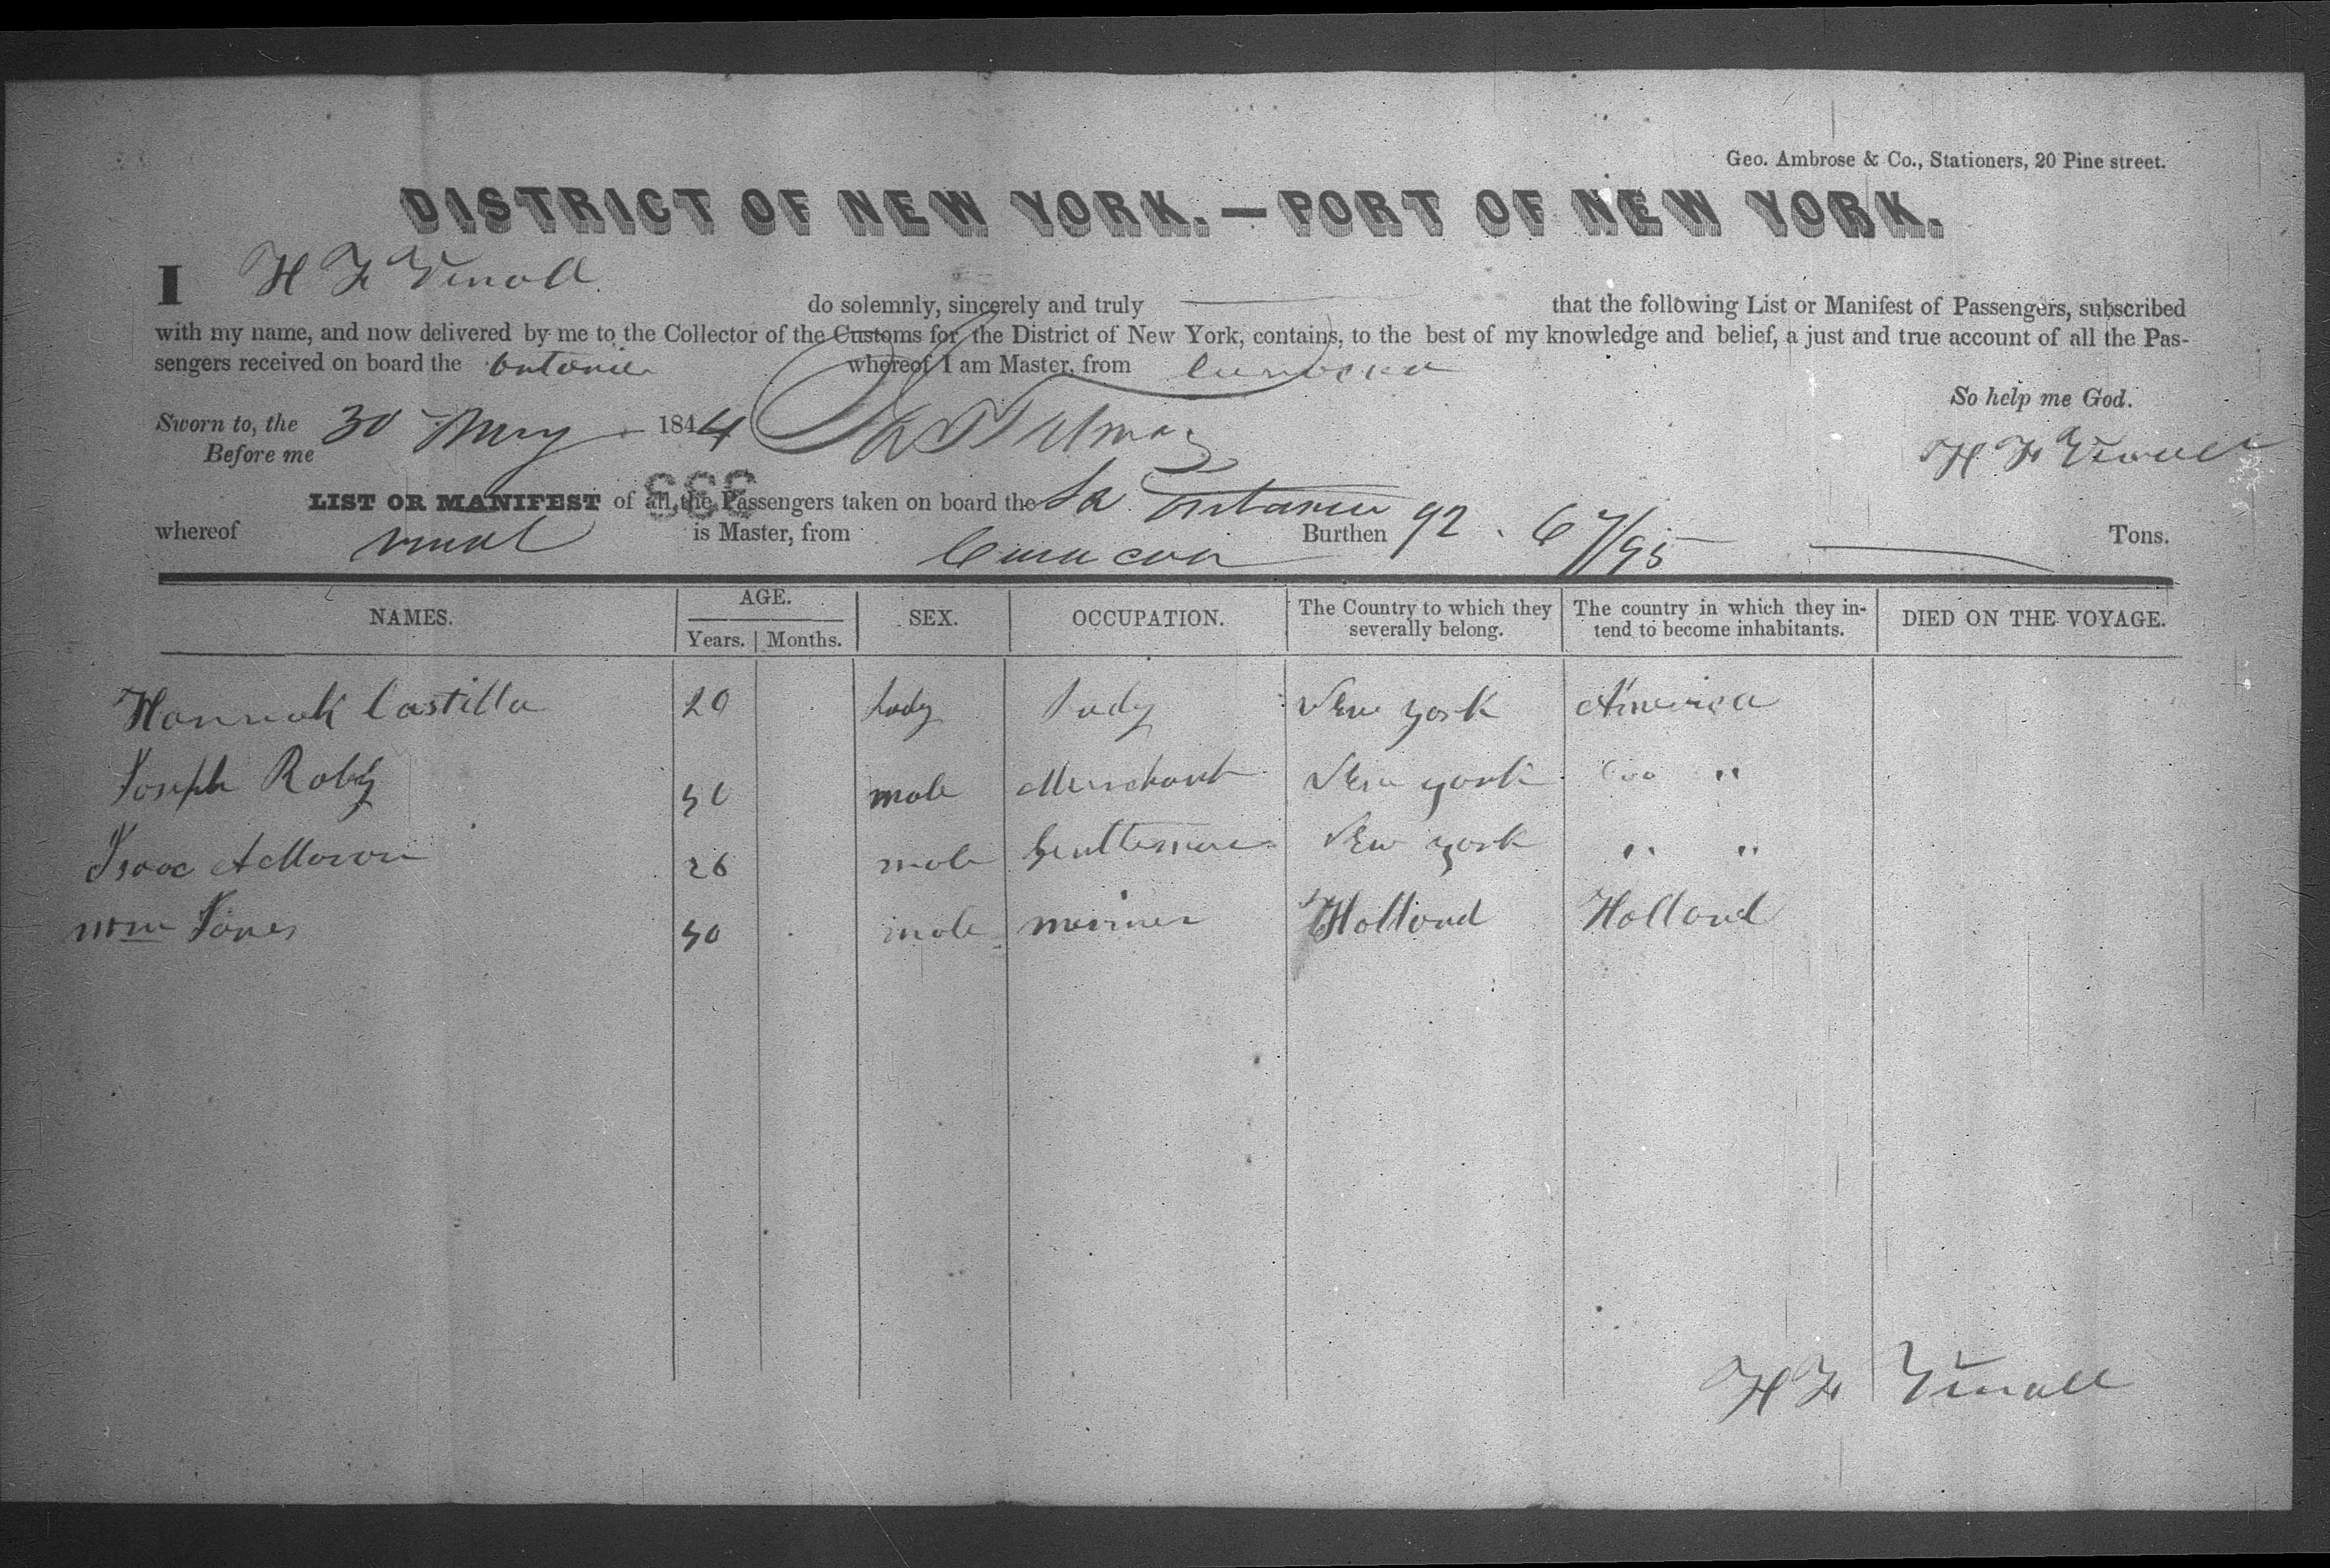 Geo. Ambrose & Co., Stationers, 20 Pine street.
DISTRICT OF NEW YORK.—PORT OF NEW YORK.
I H F Vinall do solemnly, sincerely and truly that the following List or Manifest of Passengers, subscribed
with my name, and now delivered by me to the Collector of the Customs for the District of New York, contains, to the best of my knowledge and belief, a just and true account of all the Pas-
sengers received on board the whereof I am Master, from
So help me God.
Sworn to, the 30 May 1844
Before me H F Vinall
333
LIST OR MANIFEST of all the Passengers taken on board the
whereof Vinal is Master, from Curacoa Burthen 92 . 67/95 Tons.
NAMES. AGE. SEX. OCCUPATION. The Country to which they severally belong. The country in which they in-tend to become inhabitants. DIED ON THE VOYAGE.
Years. Months.
Hannah Castillo 20 Lady Lady New York America
Joseph Roby male Merchant New york "
Isaac 26 male Gentleman New York " "
Wm Jones male Holland Holland
H F Vinall